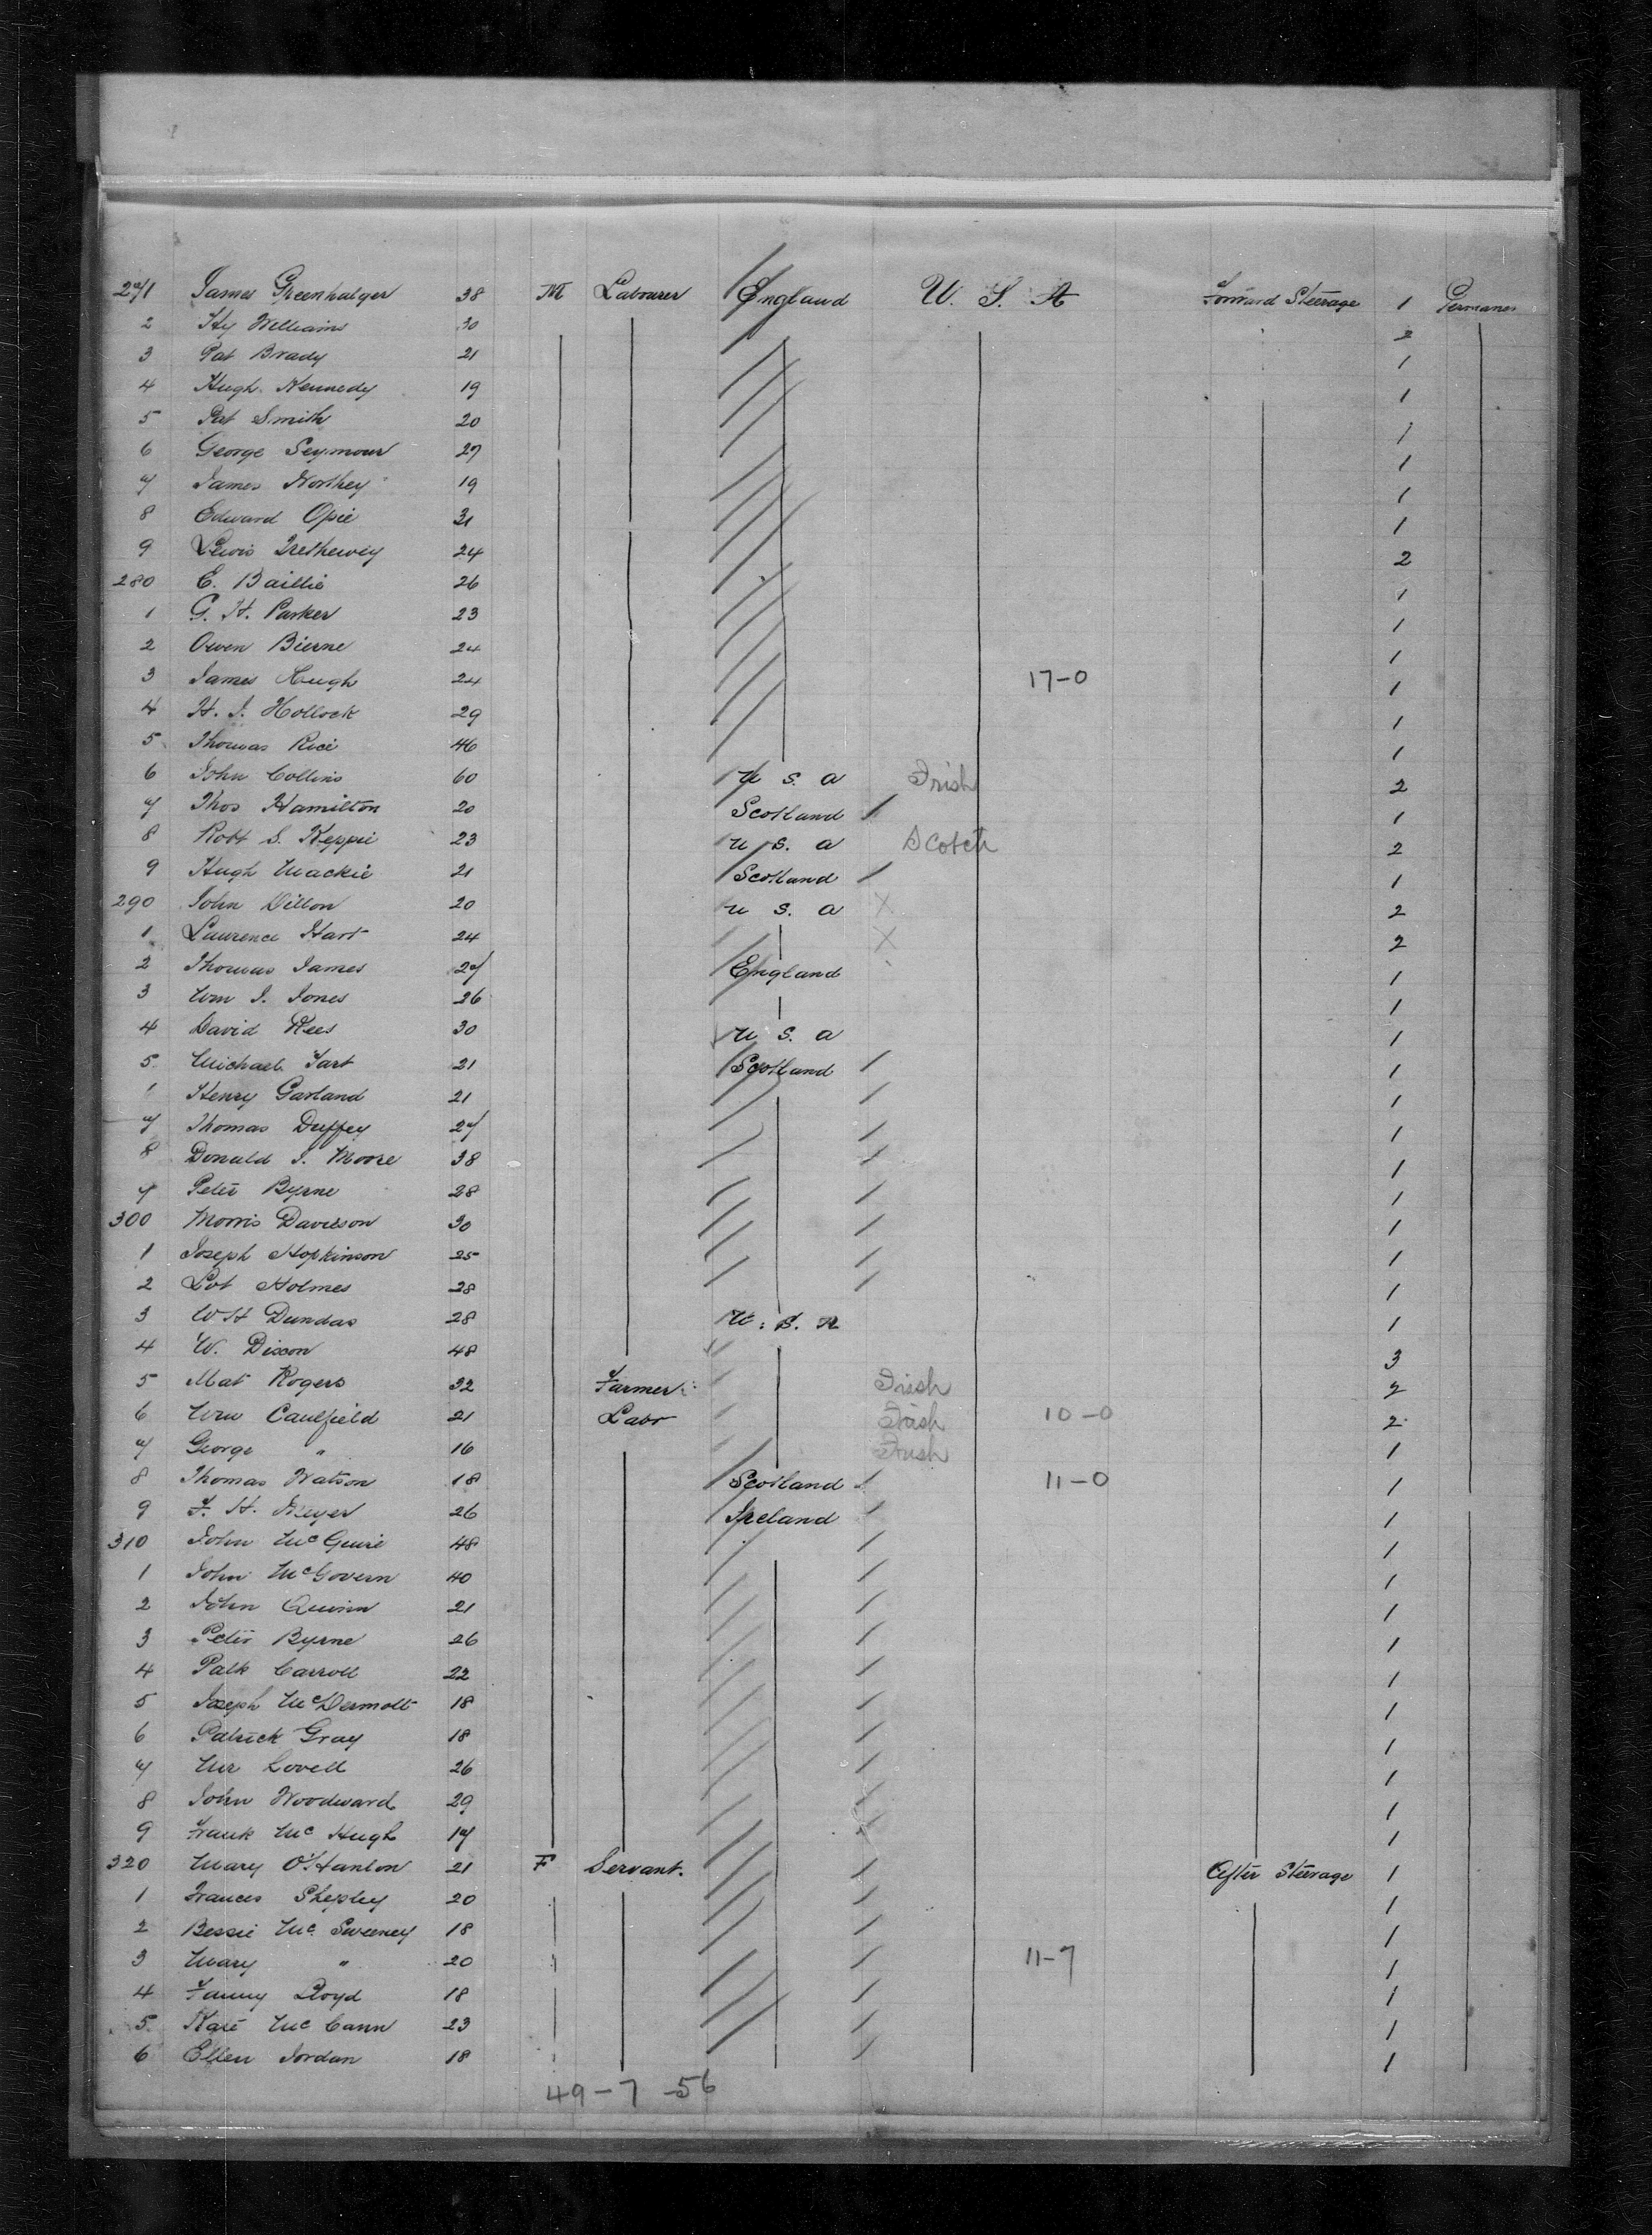 271 James Greenhalger 38 M Labourer England U. S. A Forward Steerage 1 Permanen
2 Hy Williams 30 2
3 Pat Brady 21 1
4 Hugh Kennedy 19 1
5 Pat Smith 20 1
6 George Seymour 27 1
7 James Northey 19 1
8 Edward Opie 31 1
9 Lewis Trethewey 24 2
280 E. Baillie 26 1
1 G. H. Parker 23 1
2 Owen Bierne 24 1
3 James Hugh 24 17-0 1
4 H. J. Hollock 29 1
5 Thomas Rice 46 1
6 John Collins 60 U S. A Irish 2
7 Thos Hamilton 20 Scotland 1
8 Robt S. Keppie 23 U S. A Scotch 2
9 Hugh Mackie 21 Scotland 1
290 John Dillon 20 U S. A X 2
1 Laurence Hart 24 X 2
2 Thomas James 27 England 1
3 Wm J. Jones 26 1
4 David Rees 30 U S. A 1
5 Michael 21 Scotland 1
Henry Garland 21 1
7 Thomas Duffey 27 1
8 Donald J. Moore 38 1
9 Peter Byrne 28 1
300 Morris Davieson 30 1
1 Joseph Hopkinson 25 1
2 Lot Holmes 28 1
3 W H Dundas 28 U. S. A 1
4 W. Dixon 48 3
5 Mat Rogers 32 Farmer Irish 2
6 Wm Caulfield 21 Labr Irish 10-0 2
7 George " 16 Irish 1
8 Thomas Watson 18 Scotland 11-0 1
9 F. H. Meyer 26 Ireland 1
310 John McGuire 48 1
1 John McGovern 40 1
2 John Quinn 21 1
3 Peter Byrne 26 1
4 Patk Carroll 22 1
5 Joseph McDermott 18 1
6 Patrick Gray 18 1
7 Mr Lovell 26 1
8 John Woodward 29 1
9 Frank Mc Hugh 17 1
320 Mary O'Hanlon 21 F Servant. After Steerage 1
1 Frances Shepley 20 1
2 Bessie Mc Sweeney 18 1
3 Mary " 20 11-7 1
4 Fanny Lloyd 18 1
5 Kate Mc Cann 23 1
6 Ellen Jordan 18 1
49-7-56